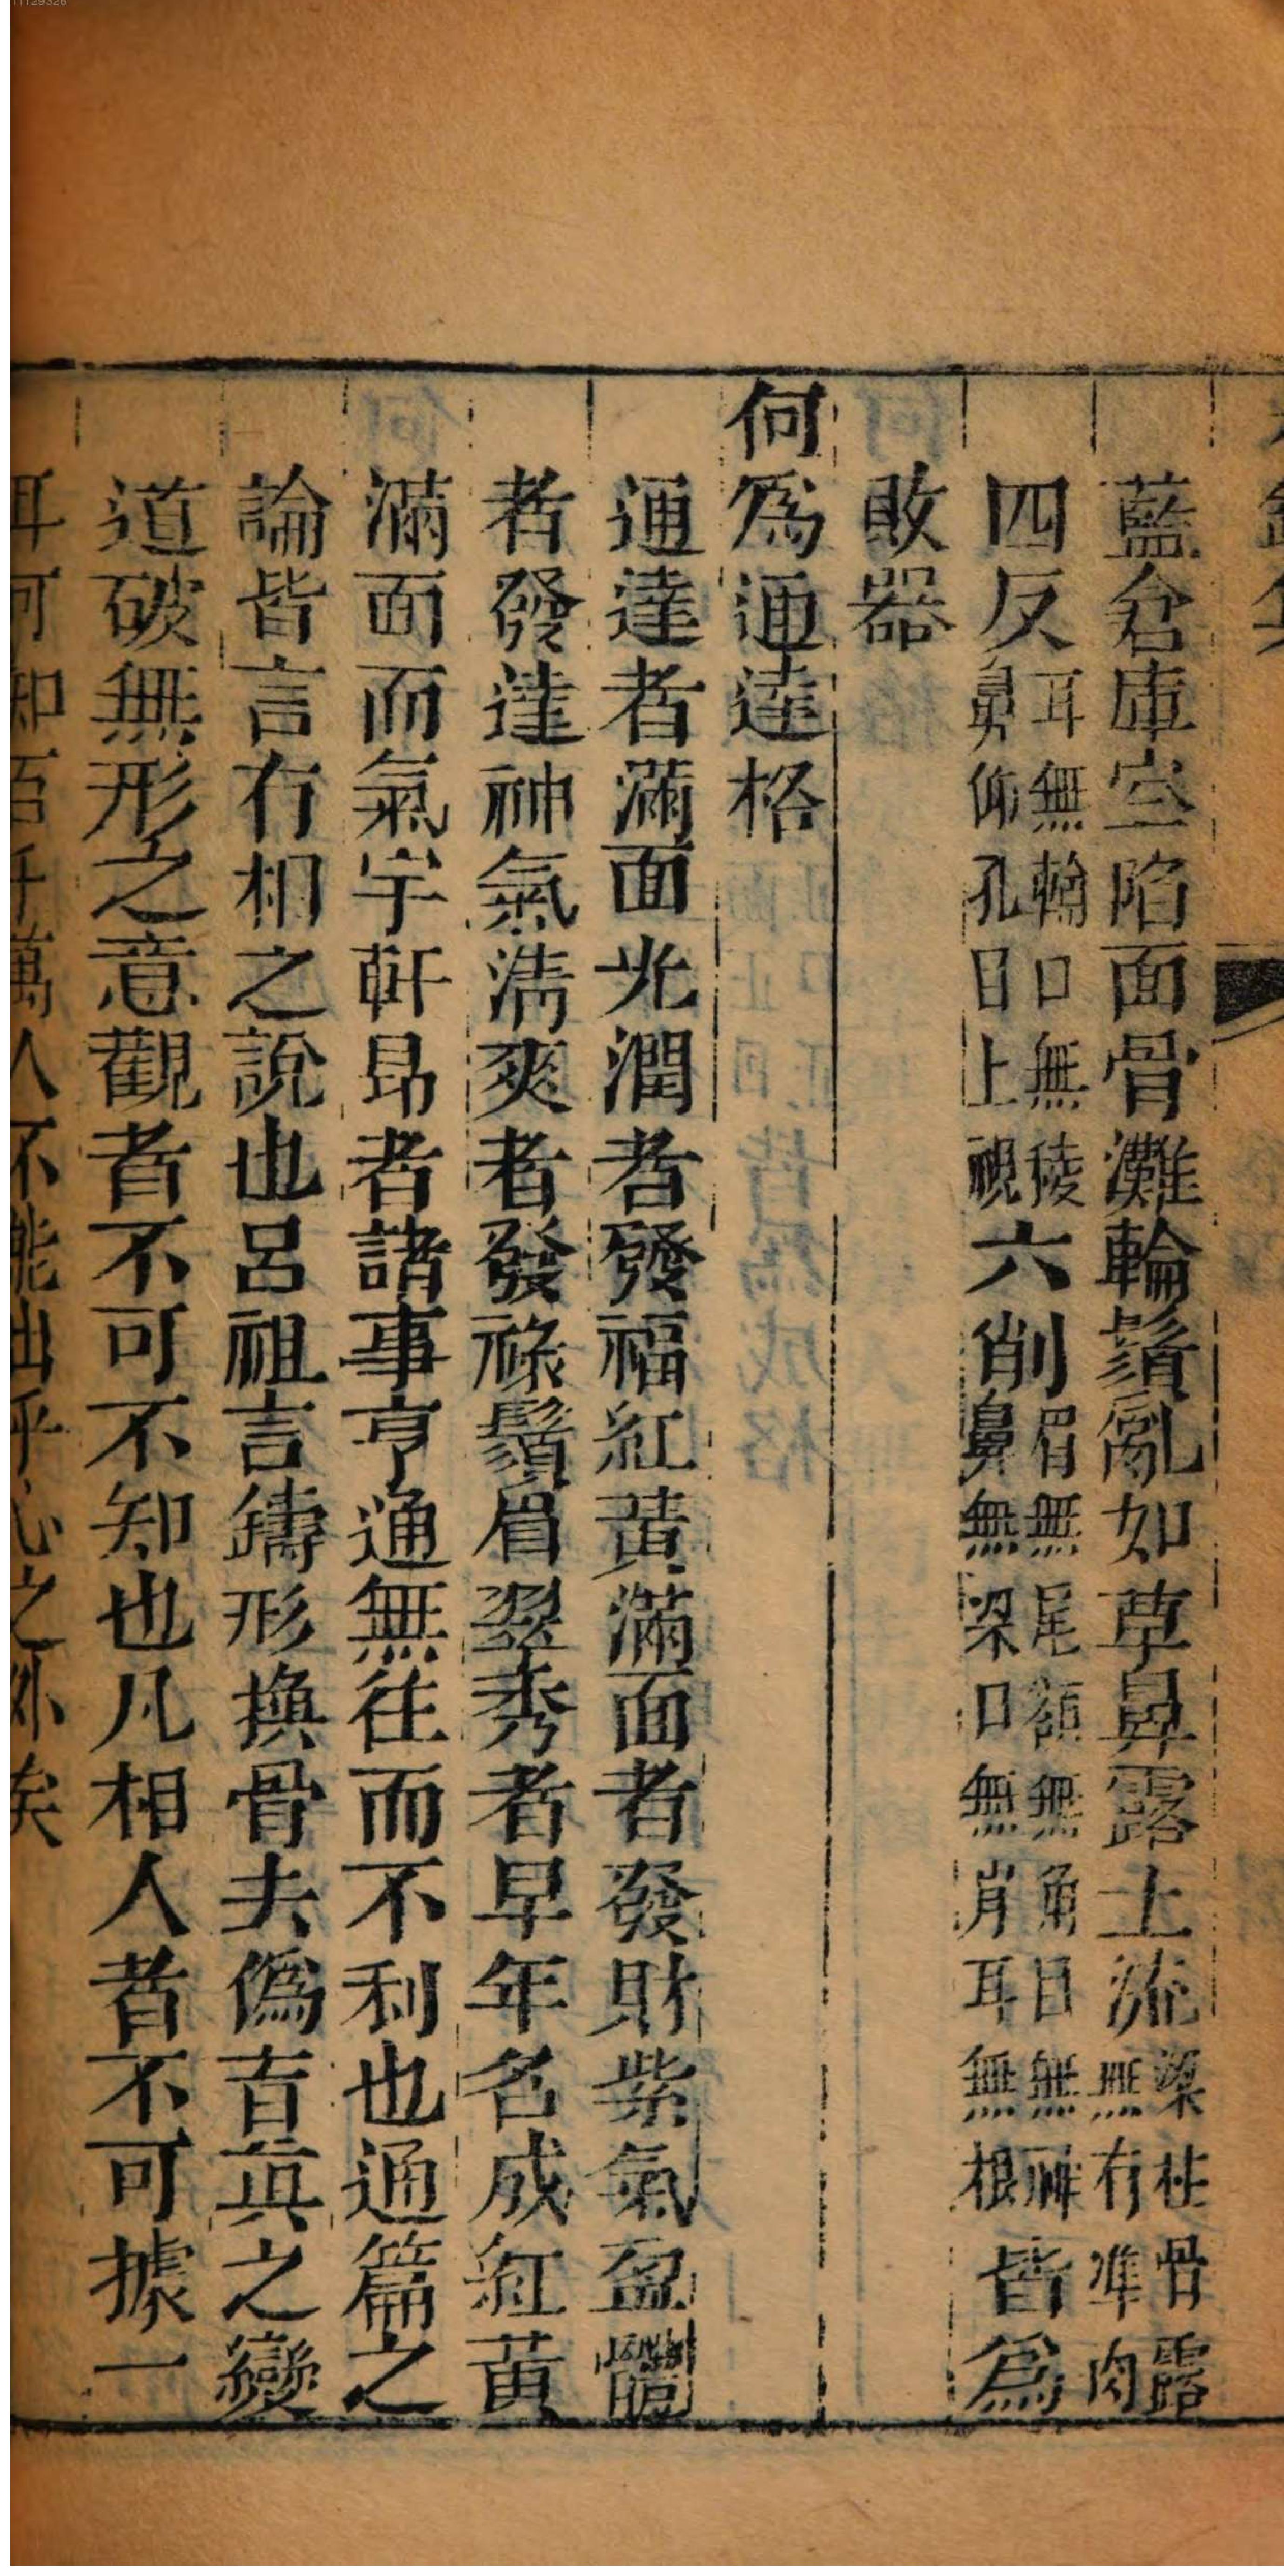 11129326
藍倉庫空陷面骨灘輪鬚亂如草鼻露土流梁柱骨露
無有準肉
四反耳無輪口無稜
鼻仰孔目上視
六削眉無尾額無角目無神
鼻無梁口無肖耳無根
皆為
敗器
何為通達格
通達者滿面光潤者發福紅黃滿面者發財紫氣盈
者發達神氣清爽者發祿鬚眉翠秀者早年名成紅黃
滿面而氣宇軒昂者諸事亨通無往而不利也通篇之
論皆言有相之說也呂祖言鑄形換骨去偽言真之變
道破無形之意觀者不可不知也凡相人者不可據一
耳何知百千萬人不能出乎心之外矣